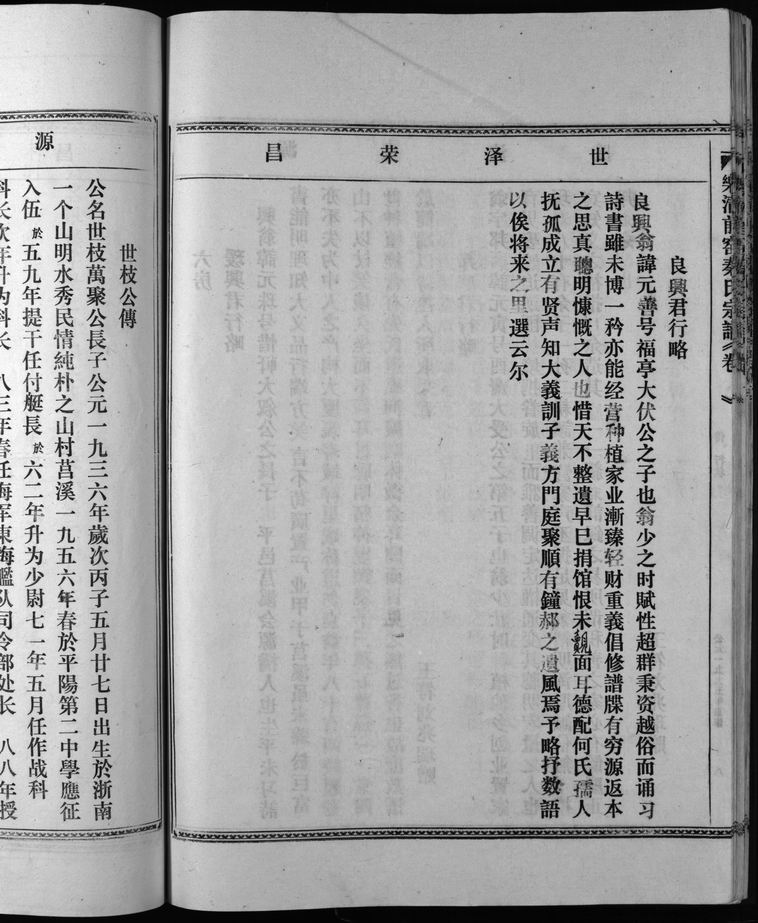 世泽荣昌
良興君行略
良興翁諱元善号福亭大伏公之子也翁少之时赋性超群秉资越俗而诵习
詩書雖未博一矜亦能经营种植家业漸臻轻财重義倡修譜牒有穷源返本
之思真聰明慷慨之人也惜天不整遺早巳捐馆恨未覩面耳德配何氏孺人
抚孤成立有贤声知大義訓子義方門庭聚順有鐘郝之遺风焉予略抒数語
以俟将来之里選云尔
源
世枝公傳
公名世枝萬聚公長子公元一九三六年歲次丙子五月廿七日出生於浙南
一个山明水秀民情純朴之山村莒溪一九五六年春於平陽第二中學應征
入伍於五九年提干任付艇長於六二年升为少尉七一年五月任作战科
科长次年升为科长八三年春任海军東海艦队司令部处长八八年授